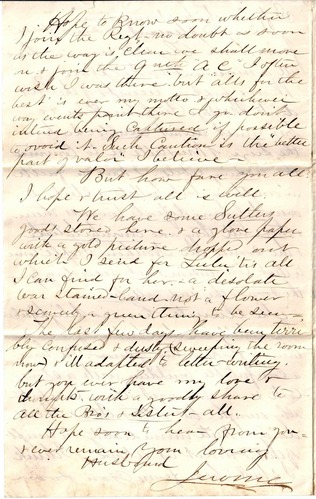 Hope to know soon whether
I join the Regt. no doubt as soon
as the way is clear we shall move
on & join the A C I often
wish I was there but "alls for the
best" is ever my motto & whichever
way events point there I go, don't
intend being Captured if possible
to avoid it. Such Caution is the better
part of valor I believe —
But how fare you all
I hope & trust all is well.
We have some Sutlers
goods stored here, & a glove paper
with a gold picture dropt out
which I send for 'tis all
I can find for her, a desolate
war stained land not a flower
& scarcely a green thing to be seen.
The last few days have been terri
bly confused & dusty, sweeping the room
now & ill adapted to letter writing.
but you ever have my love &
thoughts with a goodly share to
all the Bro's & Sisters all.
Hope soon to hear from you
& ever remain your loving
Husband
Jerome